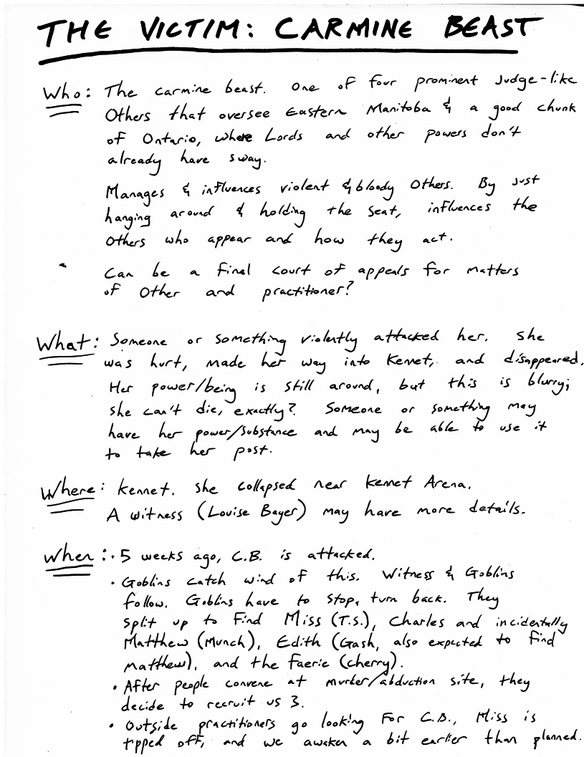 THE VICTIM: CARMINE BEAST
Who: The carmine beast. One of four prominent Judge-like
Others that oversee Eastern Manitoba & a good chunk
of Ontario, where Lords and other powers don't
already have sway.
Manages & influences violent & bloody Others. By just
hanging around & holding the seat, influences the
Others who appear and how they act.
Can be a final court of appeals for matters
of Other and practitioner?
What: Someone or something violently attacked her. She
was hurt, made her way into Kennet, and disappeared.
Her power/being is still around, but this is blurry;
she can't die, exactly? Someone or something may
have her power/substance and may be able to use it
to take her post.
Where: Kennet. She collapsed near Kennet Arena.
A witness (Louise Bayer) may have more details.
When: · 5 weeks ago, C.B. is attacked.
· Goblins catch wind of this. Witness & Goblins
follow. Goblins have to stop, turn back. They
split up to find Miss (T.S.), Charles and incidentally
Matthew (Munch), Edith (Gash, also expected to find
matthew), and the Faerie (cherry).
· After people convene at murder/abduction site, they
decide to recruit us 3.
· Outside practitioners go looking for C.B., Miss is
tipped off, and we awaken a bit earlier than planned.